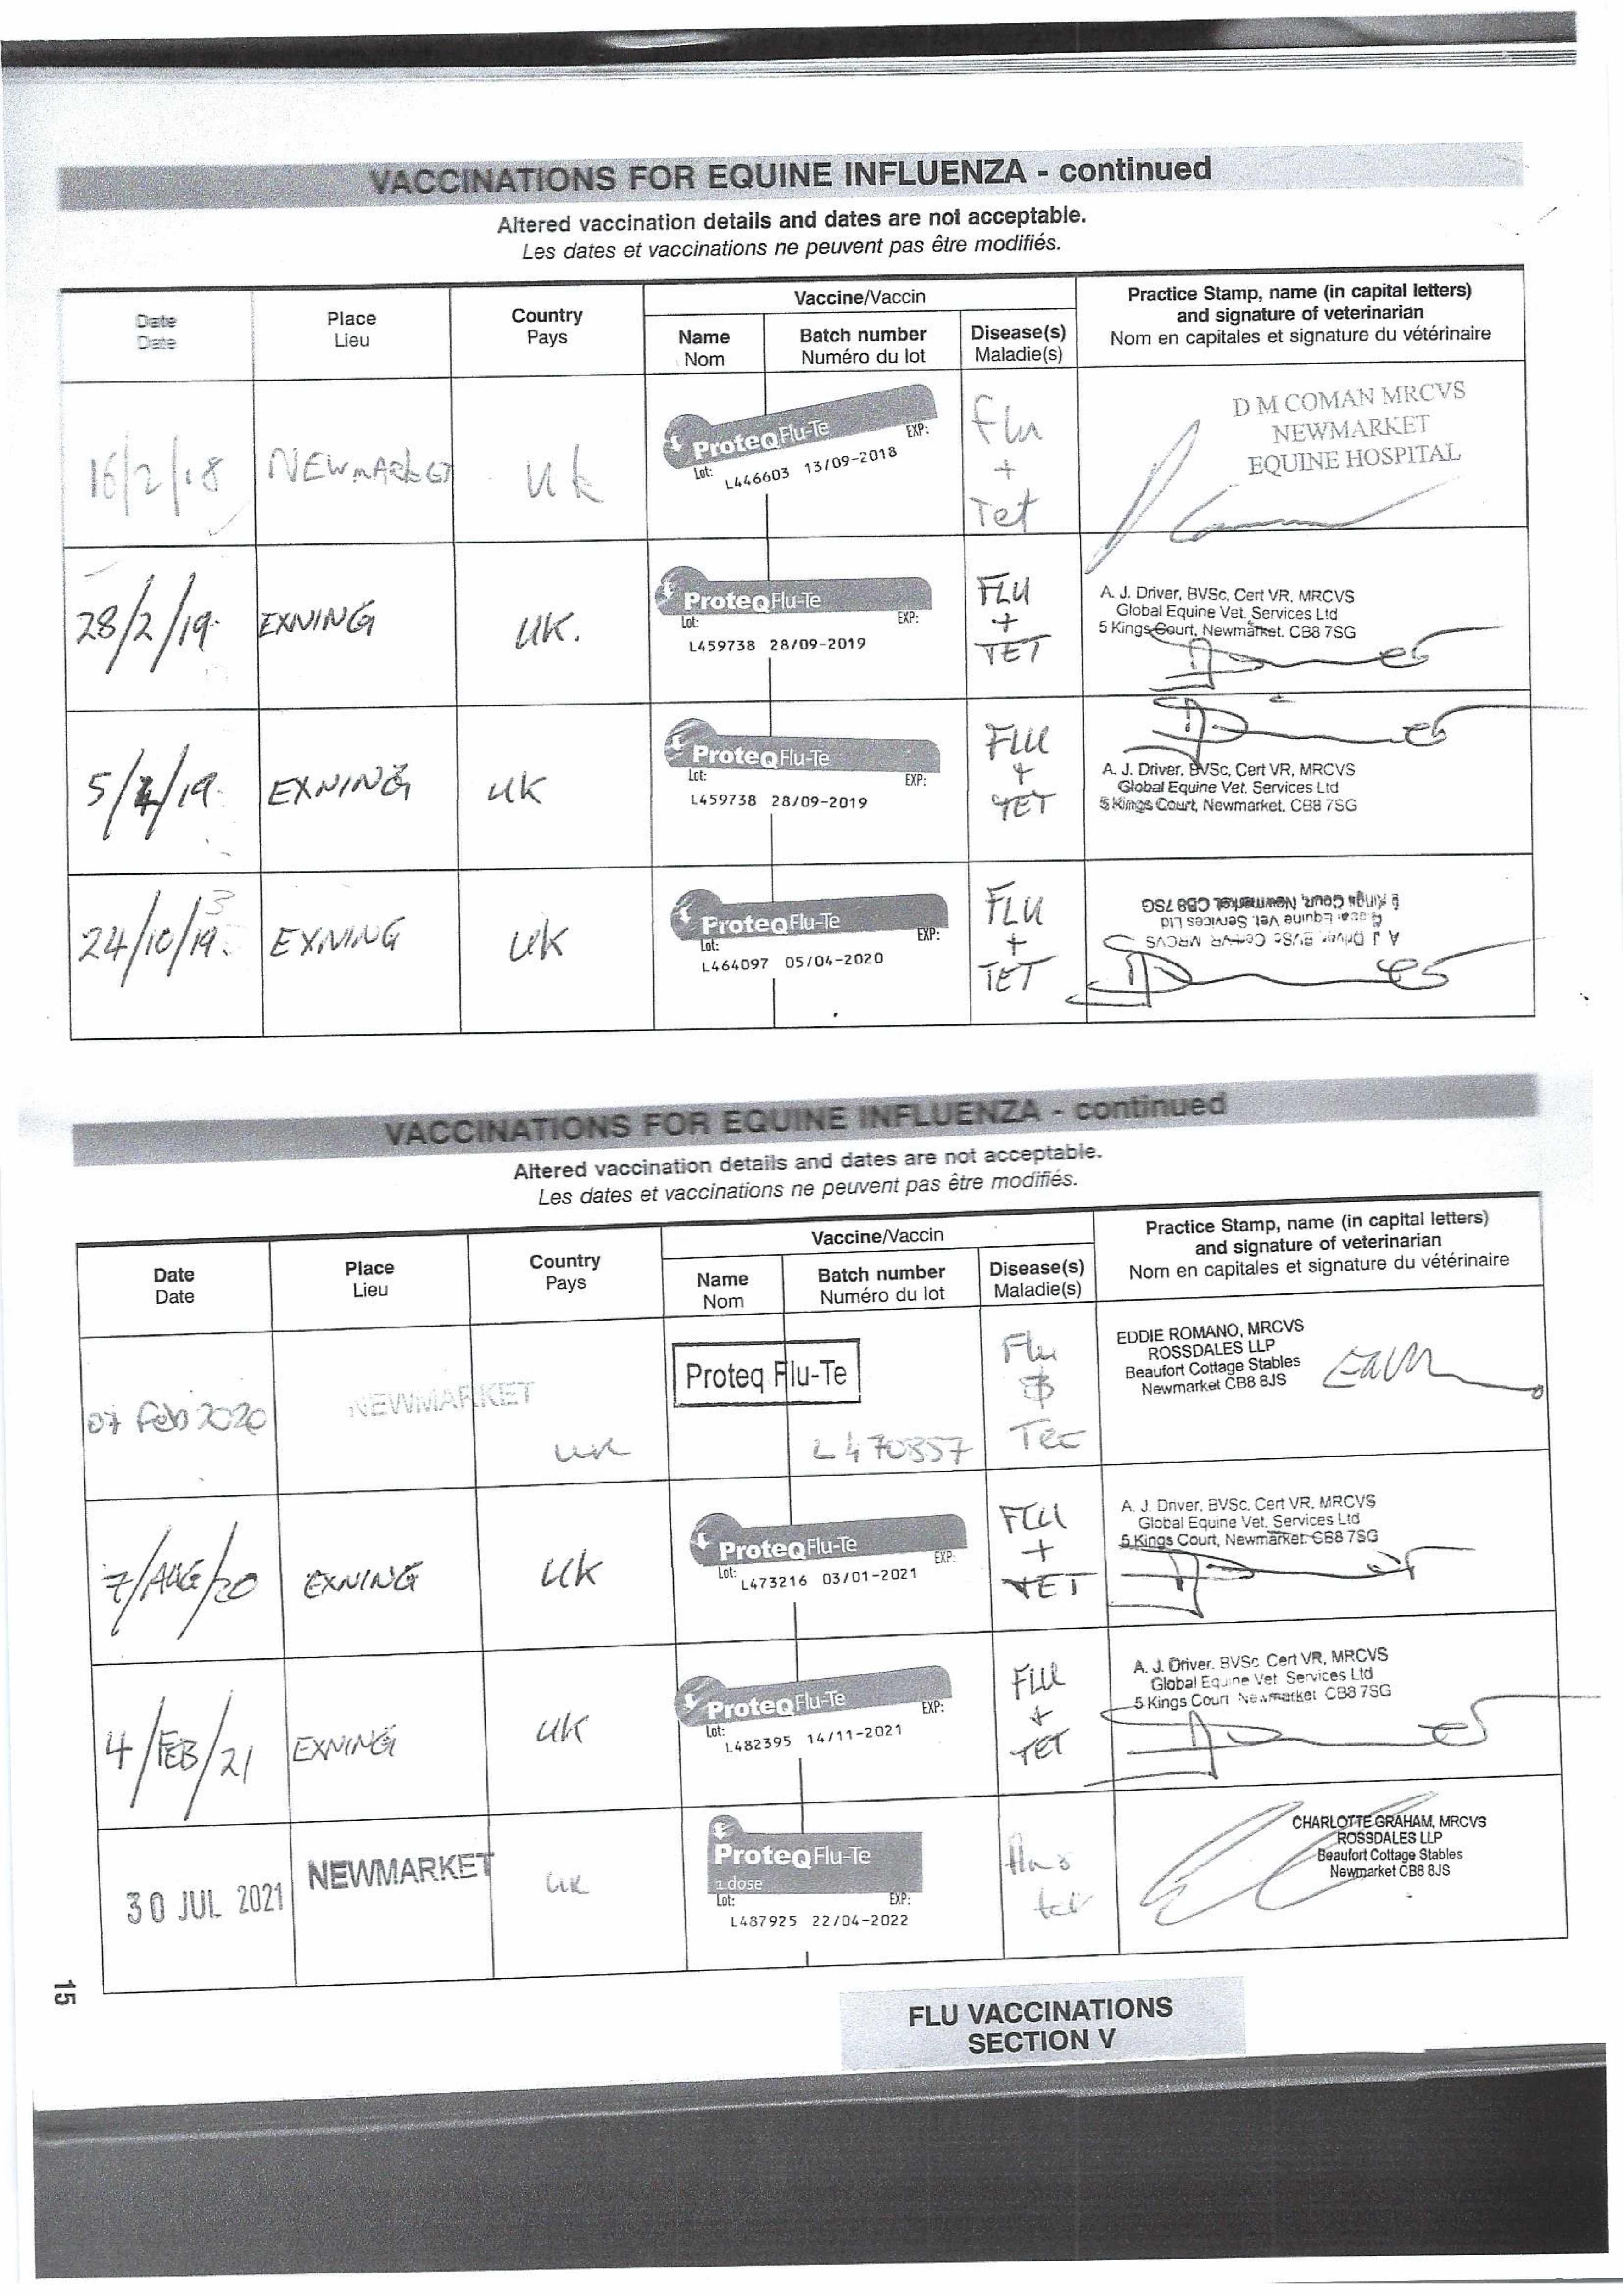 VACCINATIONS FOR EQUINE INFLUENZA - continued
Altered vaccination details and dates are not acceptable.
Les dates et vaccinations ne peuvent pas être modifiés.
Date
Date
Place
Lieu
Country
Pays
Vaccine/Vaccin
Name
Nom
Batch number
Numéro du lot
Disease(s)
Maladie(s)
Practice Stamp, name (in capital letters)
and signature of veterinarian
Nom en capitales et signature du vétérinaire
16/2/18
NEWMARKET
UK
ProteqFlu-Te
Lot: EXP:
L446603 13/09-2018
Flu
+
Tet
D M COMAN MRCVS
NEWMARKET
EQUINE HOSPITAL
28/2/19.
EXNING
UK.
ProteqFlu-Te
Lot: EXP:
L459738 28/09-2019
FLU
+
TET
A. J. Driver, BVSc, Cert VR, MRCVS
Global Equine Vet. Services Ltd
5 Kings Court, Newmarket. CB8 7SG
5/4/19.
EXNING
UK
ProteqFlu-Te
Lot: EXP:
L459738 28/09-2019
FLU
+
TET
A. J. Driver, BVSc, Cert VR, MRCVS
Global Equine Vet. Services Ltd
5 Kings Court, Newmarket. CB8 7SG
24/10/19.
EXNING
UK
ProteqFlu-Te
Lot: EXP:
L464097 05/04-2020
FLU
+
TET
A. J. Driver, BVSc, Cert VR, MRCVS
Global Equine Vet. Services Ltd
5 Kings Court, Newmarket. CB8 7SG
VACCINATIONS FOR EQUINE INFLUENZA - continued
Altered vaccination details and dates are not acceptable.
Les dates et vaccinations ne peuvent pas être modifiés.
Date
Date
Place
Lieu
Country
Pays
Vaccine/Vaccin
Name
Nom
Batch number
Numéro du lot
Disease(s)
Maladie(s)
Practice Stamp, name (in capital letters)
and signature of veterinarian
Nom en capitales et signature du vétérinaire
07 Feb 2020
NEWMARKET
UK
Proteq Flu-Te
L470357
Flu
&
Tet
EDDIE ROMANO, MRCVS
ROSSDALES LLP
Beaufort Cottage Stables
Newmarket CB8 8JS
7/AUG/20
EXNING
UK
ProteqFlu-Te
Lot: EXP:
L473216 03/01-2021
FLU
+
TET
A. J. Driver, BVSc, Cert VR, MRCVS
Global Equine Vet. Services Ltd
5 Kings Court, Newmarket. CB8 7SG
4/FEB/21
EXNING
UK
ProteqFlu-Te
Lot: EXP:
L482395 14/11-2021
FLU
+
TET
A. J. Driver, BVSc Cert VR, MRCVS
Global Equine Vet Services Ltd
5 Kings Court Newmarket CB8 7SG
30 JUL 2021
NEWMARKET
UK
ProteqFlu-Te
1 dose
Lot: EXP:
L487925 22/04-2022
flu &
tet
CHARLOTTE GRAHAM, MRCVS
ROSSDALES LLP
Beaufort Cottage Stables
Newmarket CB8 8JS
15
FLU VACCINATIONS
SECTION V